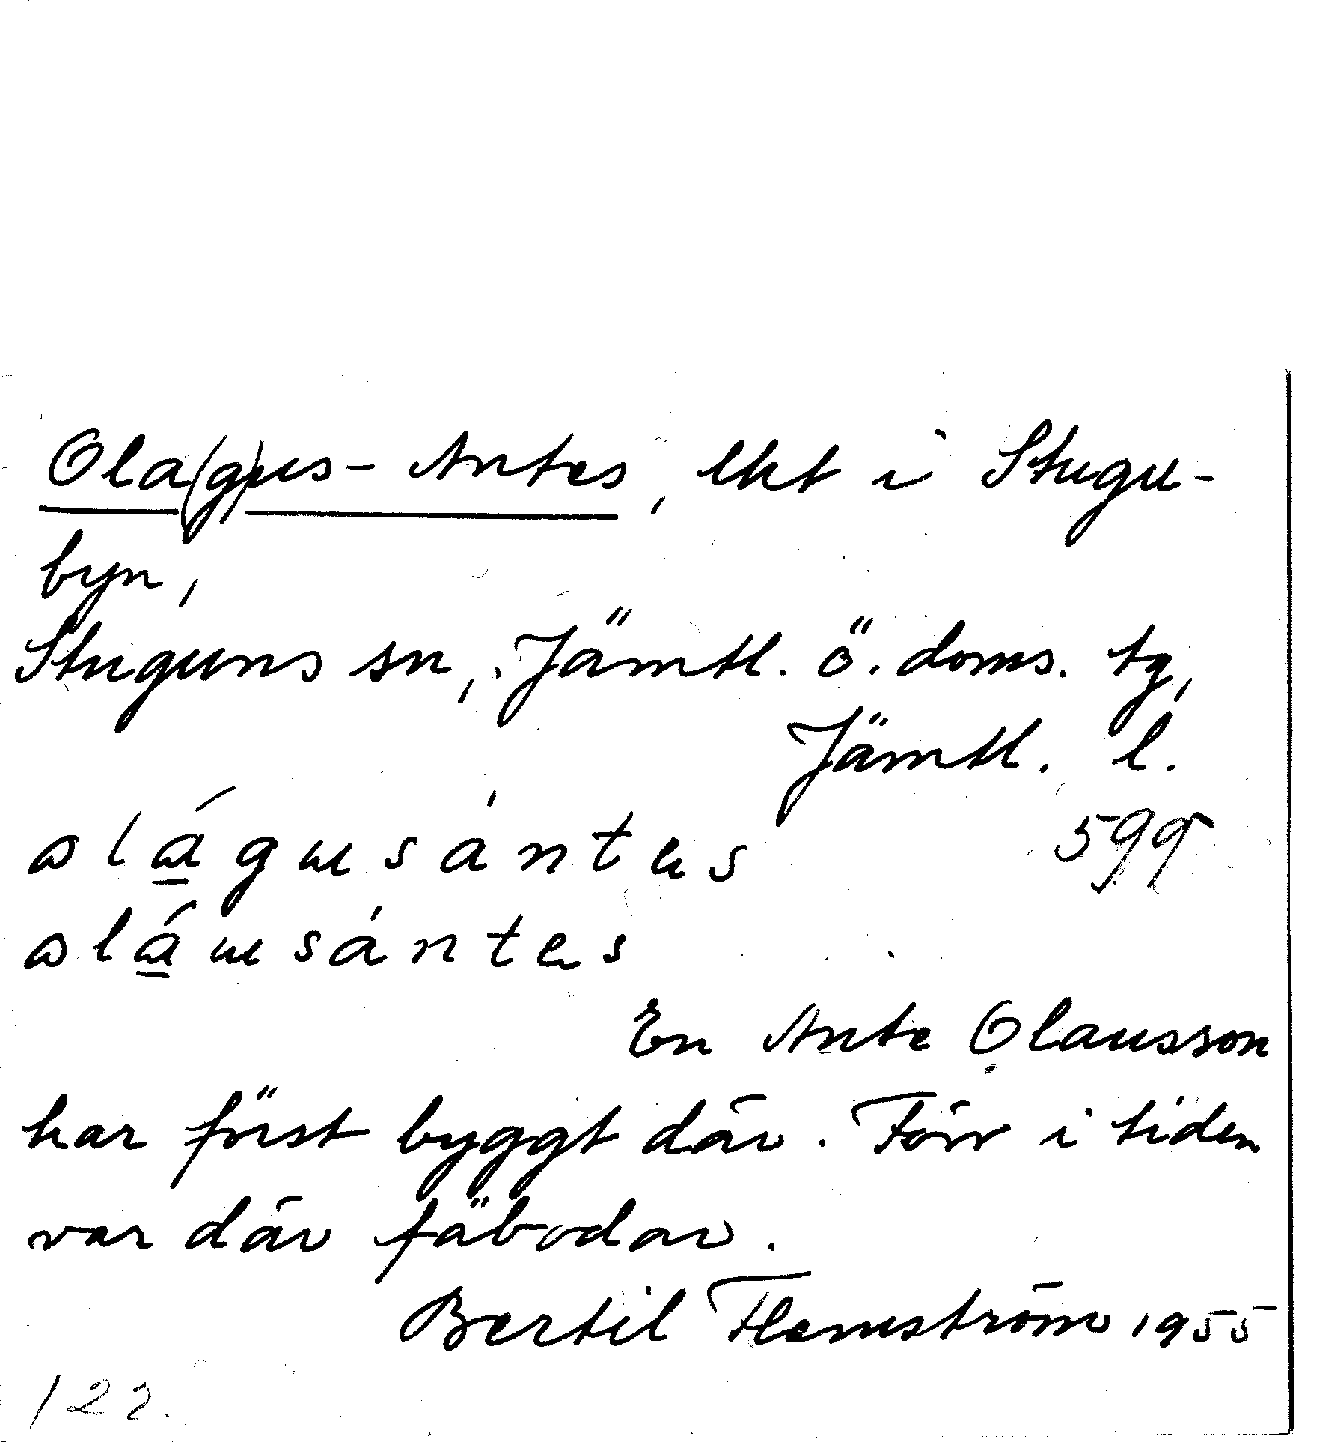 Ola(g)us-Antes, lkt i Stugu-
byn,
Stuguns sn, Jämtl. ö. doms. tg,
Jämtl. l.
599
En Ante Olausson
har först byggt där. Förr i tiden
var där fäbodar.
Bertil Flemström 1955
122.